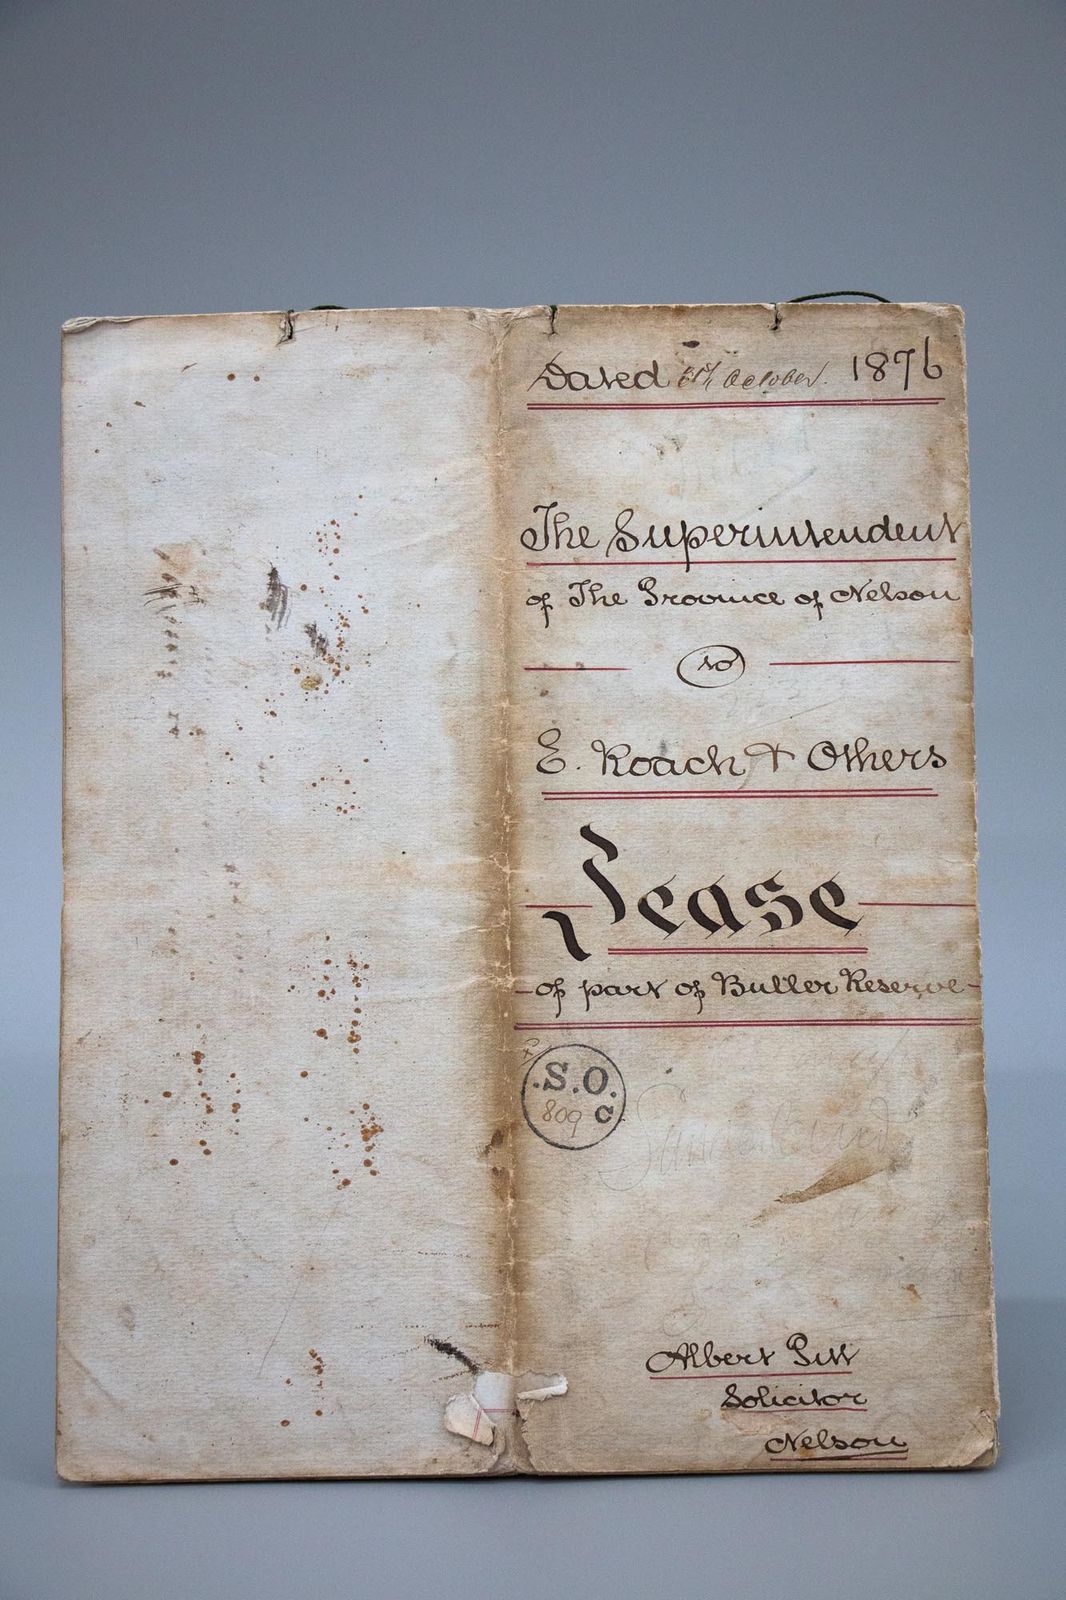 Dated October. 1876
The Superintendent
of The Province of Nelson
to
E. Roach & Others
Lease
of part of Buller Reserve
S.O.
809 C
Albert Pitt
Solicitor
Nelson